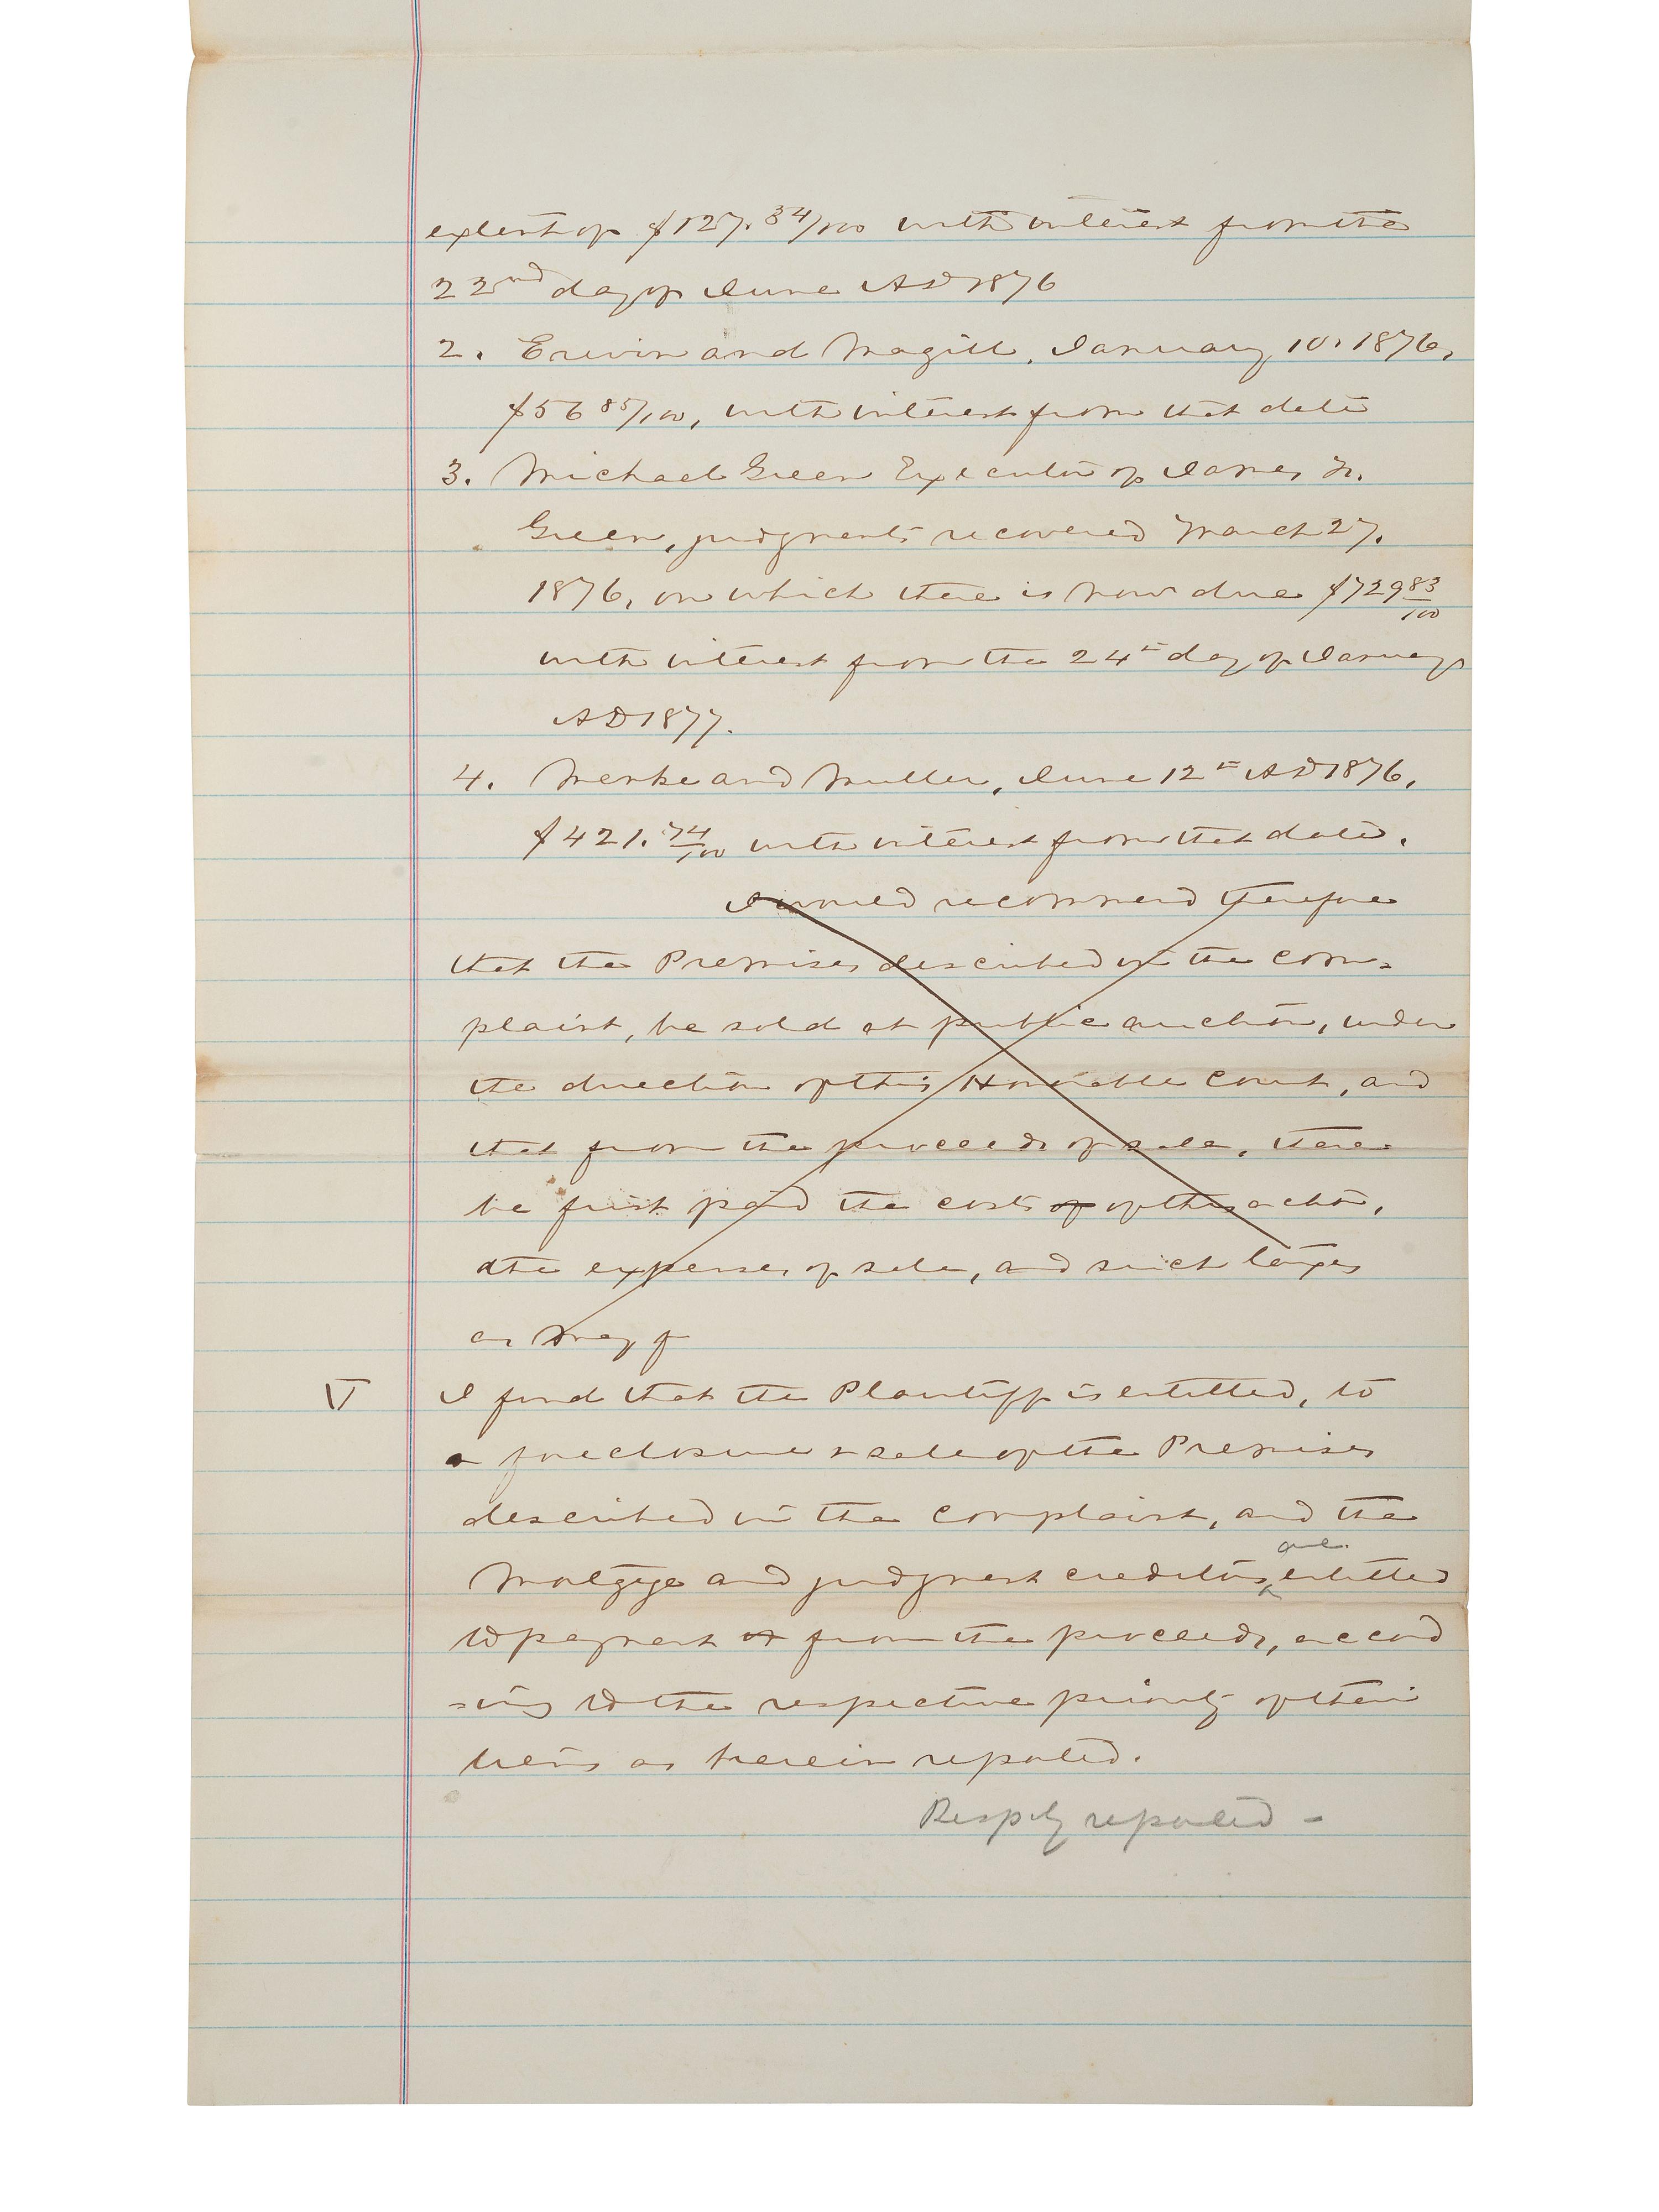 extent of $127.34/100 with interest from the
22nd day of June AD 1876
2. Erwin and Magill, January 10. 1876,
$56 85/100, with interest from that date
3. Michael Green Executor of James
Green, judgments recovered March 27.
1876, on which there is now due $729 83/100
with interest from the 24th day of January
AD 1877.
4. Menke and Muller, June 12th AD 1876,
$421. 74/100 with interest from that date.
I would recommend therefore
that the Premises described in the com=
plaint, be sold at public auction, under
the direction of this Honorable Court, and
that from the proceeds of sale, there
be first paid the costs of of this action,
the expenses of sale, and such taxes
as may f
V I find that the Plaintiff is entitled, to
a foreclosure & sale of the Premises
described in the Complaint, and the
are
Mortgage and judgment creditors entitled
to payment from the proceeds, accord
=ing to the respective priority of their
liens as herein reported.
Resply reported -